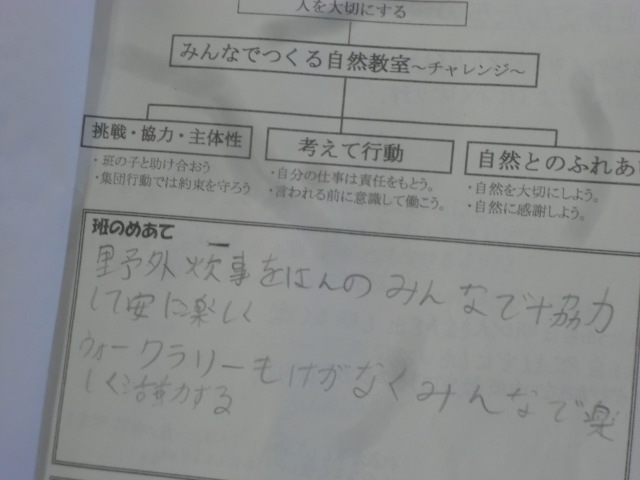 人を大切にする
みんなでつくる自然教室～チャレンジ～
挑戦・協力・主体性
・班の子と助け合おう
・集団行動では約束を守ろう
考えて行動
・自分の仕事は責任をもとう。
・言われる前に意識して働こう。
自然とのふれあ
・自然を大切にしよう。
・自然に感謝しよう。
班のめあて
野外炊事をはんのみんなで協力
して安に楽しく
ウォークラリーもけがなくみんなで楽
しく活動する